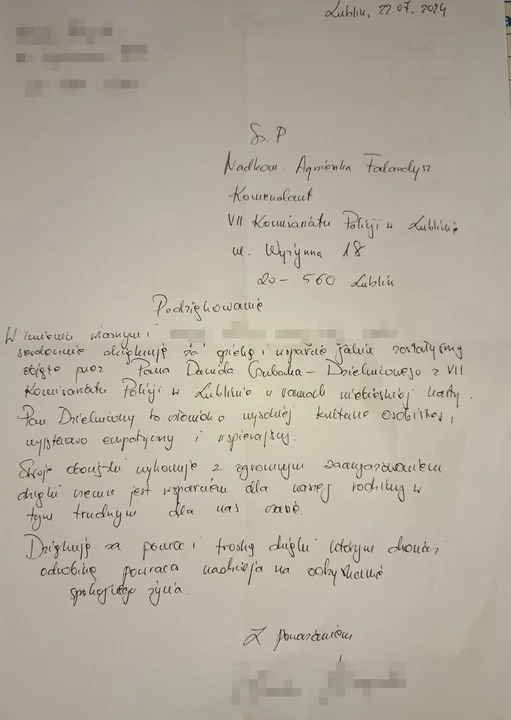 Lublin, 22.07.2024
Sz. P.
Nadkom. Agnieszka Falandysz
Komendant
VII Komisariatu Policji w Lublinie
ul. Wyżynna 18
20-560 Lublin
Podziękowanie
W imieniu własnym i
serdecznie dziękuję za opiekę i wsparcie jakie zostałyśmy
objęte przez Pana Dawida - Dzielnicowego z VII
Komisariatu Policji w Lublinie w ramach niebieskiej karty.
Pan Dzielnicowy to o wysokiej kulturze osobistej,
empatyczny i wspierający.
Swoje obowiązki wykonuje z ogromnym zaangażowaniem
dzięki czemu jest wsparciem dla naszej rodziny w
tym trudnym dla nas czasie.
Dziękuję za pomoc i troskę dzięki którym chociaż
odrobinę powraca nadzieja na odzyskanie
spokojnego życia.
Z poważaniem